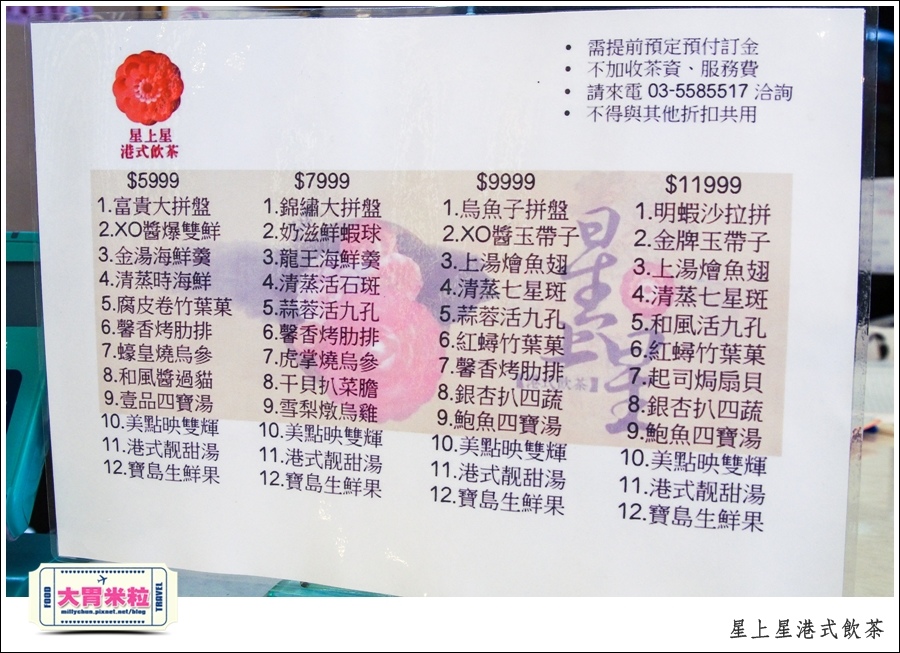 • 需提前預定預付訂金
• 不加收茶資、服務費
• 請來電 03-5585517 洽詢
• 不得與其他折扣共用
星上星
港式飲茶
$5999
1.富貴大拼盤
2.XO醬爆雙鮮
3.金湯海鮮羹
4.清蒸時海鮮
5.腐皮卷竹葉菓
6.馨香烤肋排
7.蠔皇燒烏參
8.和風醬過貓
9.壹品四寶湯
10.美點映雙輝
11.港式靚甜湯
12.寶島生鮮果
$7999
1.錦繡大拼盤
2.奶滋鮮蝦球
3.龍王海鮮羹
4.清蒸活石斑
5.蒜蓉活九孔
6.馨香烤肋排
7.虎掌燒烏參
8.干貝扒菜膽
9.雪梨燉烏雞
10.美點映雙輝
11.港式靚甜湯
12.寶島生鮮果
$9999
1.烏魚子拼盤
2.XO醬玉帶子
3.上湯燴魚翅
4.清蒸七星斑
5.蒜蓉活九孔
6.紅蟳竹葉菓
7.馨香烤肋排
8.銀杏扒四蔬
9.鮑魚四寶湯
10.美點映雙輝
11.港式靚甜湯
12.寶島生鮮果
$11999
1.明蝦沙拉拼
2.金牌玉帶子
3.上湯燴魚翅
4.清蒸七星斑
5.和風活九孔
6.紅蟳竹葉菓
7.起司焗扇貝
8.銀杏扒四蔬
9.鮑魚四寶湯
10.美點映雙輝
11.港式靚甜湯
12.寶島生鮮果
星上星
【港式飲茶】
FOOD
大胃米粒
millychun.pixnet.net/blog
TRAVEL
星上星港式飲茶